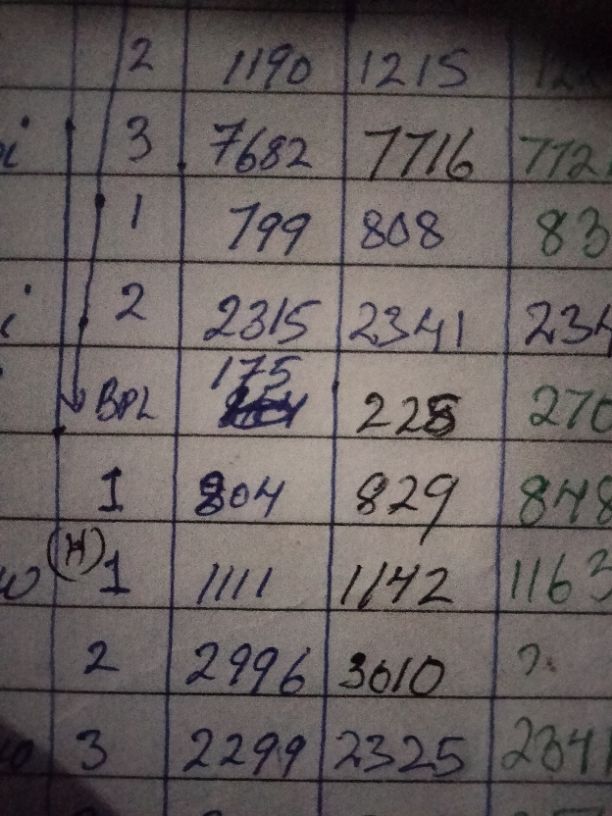 2 1190 1215
3 7682 7716
1 799 808
2 2315 2341
175
BPL 228 270
1 804 829 848
(H) 1 1111 1142 1163
2 2996 3010 ?
3 2299 2325 2341